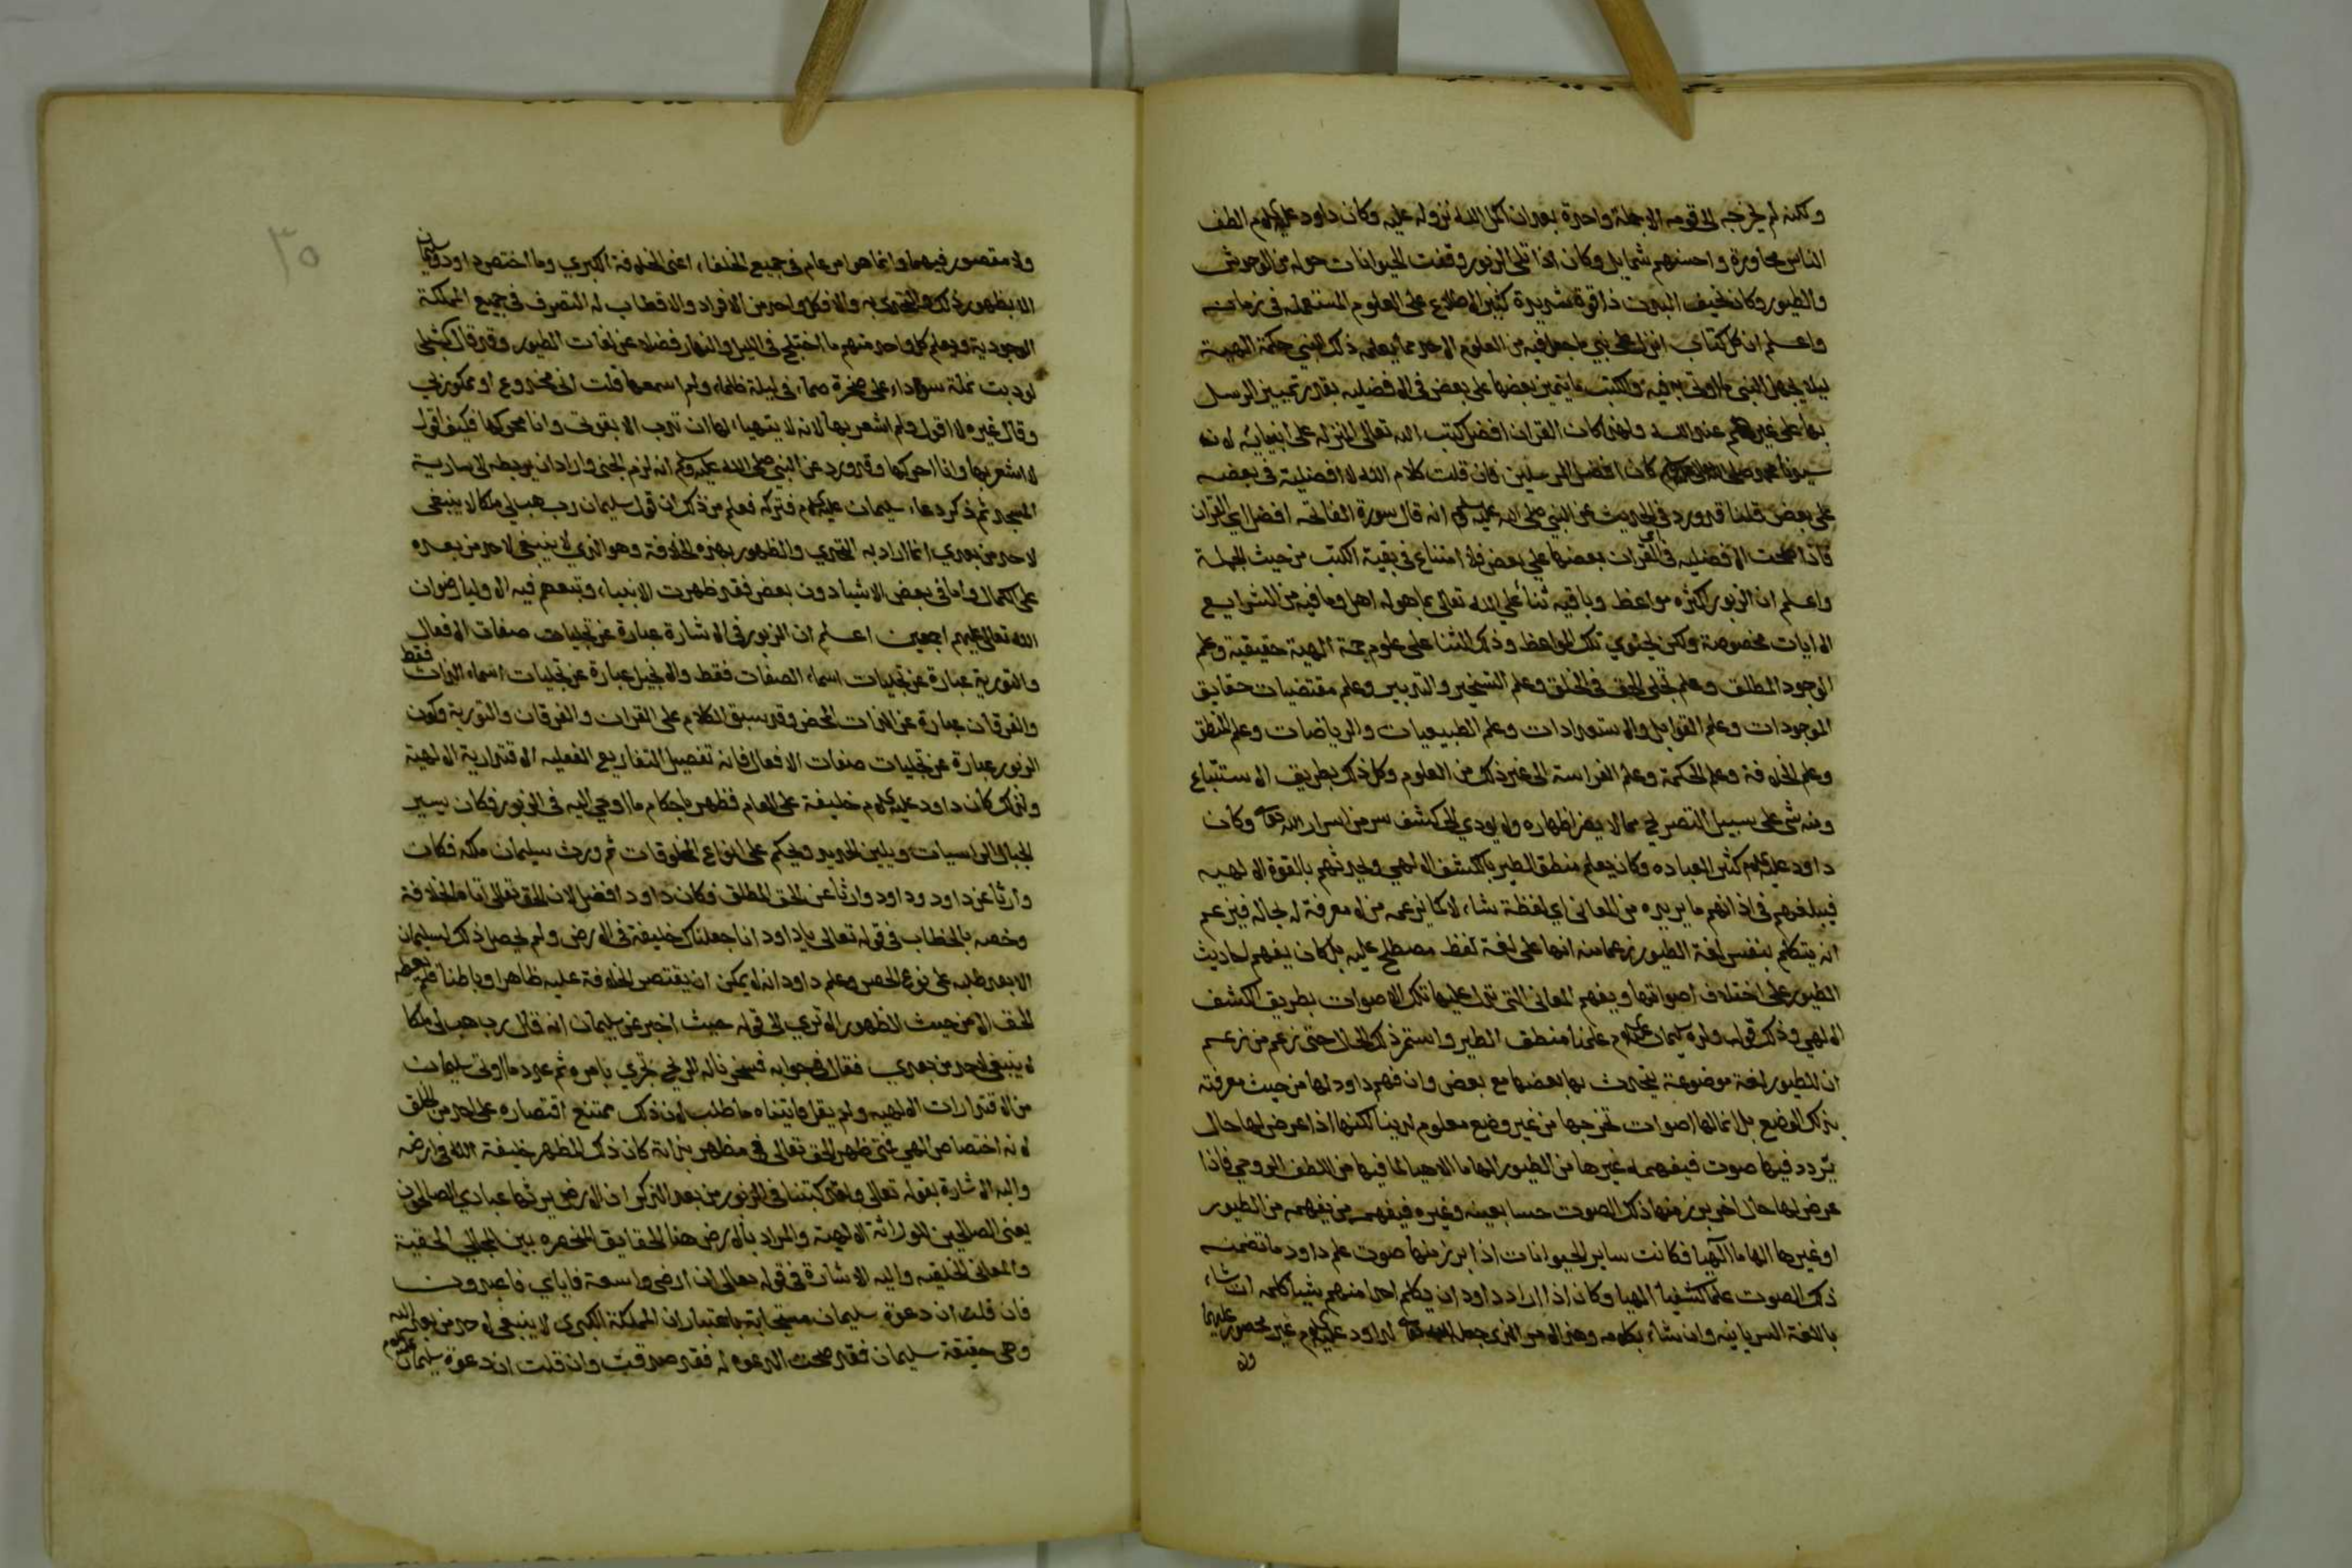 ولكنه لم يخرجه الى قومه الا جملة واحدة بعد ان اكمل الله نزوله عليه وكان داود عليه السلام الطف
الناس محاورة واحسنهم شمايل وكان اذا تلى الزبور وقفت الحيوانات حوله من الوحوش
والطيور وكان نحيف البدن ذا قوة شديدة كثير الاطلاع على العلوم المستعمله في زمانه
واعلم ان كل كتاب انزل على نبي ما جعل فيه من العلوم الا حد ما يعلمه ذلك النبي حكمة الهية
ليلا يجهل النبي ما اوتى به فيه والكتب يتميز بعضها على بعض في الافضليه بقدر تمييز الرسل
بها على غيرهم عند الله ولهذا كان القران افضل كتب الله تعالى المنزله على انبيائه لانه
سيدنا محمد صلى الله عليه وسلم كان افضل المرسلين فان قلت كلام الله لا افضلية في بعضه
على بعض قلنا قد ورد في الحديث عن النبي صلى الله عليه وسلم انه قال سورة الفاتحه افضل اي القران
فاذا صحت الافضليه في القران بعضها على بعض فلا امتناع في بقية الكتب من حيث الجملة
واعلم ان الزبور اكثره مواعظ وباقيه ثناء على الله تعالى بما هو له اهل وما فيه من الشرايع
الا ايات مخصوصة ولكن يحتوي تلك المواعظ وذلك الثنا على علوم جمة الهية حقيقية وعلم
الوجود المطلق وعلم تجلى الحق في الخلق وعلم التسخير والتدبير وعلم مقتضيات حقايق
الموجودات وعلم القوابل والاستعدادات وعلم الطبيعيات والرياضات وعلم المنطق
وعلم الخلافة وعلم الحكمة وعلم الفراسة الى غير ذلك من العلوم وكل ذلك بطريق الاستتباع
ومنه شئ على سبيل التصريح مما لا يضر اظهاره ولا يودي الى كشف سر من اسرار الله تعالى وكان
داود عليه السلام كثير العباده وكان يعلم منطق الطير بالكشف الالهي ويحدثهم بالقوة الالهيه
فيبلغهم في اذانهم ما يريده من المعاني اي لفظة شاء لا كما يزعمه من لا معرفة له بحاله فيزعم
انه يتكلم بنفس لغة الطيور زعما منه انها على لغة لفظ مصطلح عليه بل كان يفهم احاديث
الطيور على اختلاف اصواتها ويفهم المعاني التي تدل عليها تلك الاصوات بطريق الكشف
الالهي وذلك قول ولده سليمان عليه السلام علمنا منطق الطير واستمر ذلك الحال حتى زعم من زعم
ان للطيور لغة موضوعة يتحدث بها بعضها مع بعض وان فهم داود لها من حيث معرفته
بذلك الوضع بل انما لها اصوات تخرجها من غير وضع معلوم لدينا لكنها اذا عرض لها حال
يتردد فيها صوت فيفهمه غيرها من الطيور الهاما الاهيا لما فيها من اللطف الروحي فاذا
عرض لها حال اخر برز منها ذلك الصوت حسا بعينه وغيره فيفهمه من يفهمه من الطيور
او غيرها الهاما الهيا فكانت ساير الحيوانات اذا برز منها صوت علم داود ما تضمنه
ذلك الصوت علما كشفيا الهيا وكان اذا اراد داود ان يكلم احدا منهم بشيا كلمه ان شاء
باللغة السريانيه وان شاء بكلامه وهذا الامر الذي جعل الله تعالى لداود عليه السلام غير محصور عليهما
ولا
٣٠
ولا مقتصور فيهما وانما هو امر عام في جميع الخلفاء اعنى الخلافة الكبرى وما اختص داود وسليمان
الا بظهور ذلك والتحدي به والا فكل واحد من الافراد والاقطاب له التصرف في جميع المملكة
الوجودية ويعلم كل واحد منهم ما اختلج في الليل والنهار فضلا عن لغات الطيور وقد قال الشبلى
لو دبت نملة سوداء على صخرة صماء في ليلة ظلماء ولم اسمعها قلت اني مخدوع او ممكور بي
وقال غيره لا اقول ولم اشعر بها لانه لا يتهياء لها ان تدب الا بقوتي وانا محركها فكيف اقول
لا اشعر بها وانا احركها وقد ورد عن النبي صلى الله عليه وسلم انه لزم الجنى واراد ان يربطه الى سارية
المسجد ثم ذكر دعاء سليمان عليه السلام فتركه فعلم من ذلك ان قول سليمان رب هب لي ملكا لا ينبغي
لاحد من بعدي انما اراد به التحدي والظهور بهذه الخلافة وهو الذي لا ينبغي لاحد من بعده
على الكمال واما في بعض الاشيا دون بعض فقد ظهرت الانبياء وتبعهم فيه الاوليا رضوان
الله تعالى عليهم اجمعين اعلم ان الزبور في الاشارة عبارة عن تجليات صفات الافعال
والتورية عبارة عن تجليات اسماء الصفات فقط والانجيل عبارة عن تجليات اسماء الذات فقط
والفرقان عبارة عن الذات المحض وقد سبق الكلام على القران والفرقان والتورية وكون
الزبور عبارة عن تجليات صفات الافعال فانه تفصيل التفاريع الفعليه الاقتدارية الالهية
ولذلك كان داود عليه السلام خليفة على العالم فظهر باحكام ما اوحي اليه في الزبور فكان يسير
الجبال الراسيات ويلين الحديد ويحكم على انواع المخلوقات ثم ورث سليمان ملكه فكان
وارثا عن داود وداود وارثا عن الحق المطلق وكان داود افضل لان الحق تعالى اتاه الخلافة
وخصه بالخطاب في قوله تعالى يا داود انا جعلناك خليفة في الارض ولم يحصل ذلك لسليمان
الا بعد طلبه على نوع الحصر وعلم داود انه لا يمكن ان يقتصر الخلافة عليه ظاهرا وباطنا فلم يعطه
الحق الا من حيث الظهور الا ترى الى قوله حيث اخبر عن سليمان انه قال رب هب لي ملكا
لا ينبغي لاحد من بعدي فقال في جوابه فسخرنا له الريح تجري بامره ثم عدد ما اوتى سليمان
من الاقتدارات الالهيه ولم يقل فاتيناه ما طلب لان ذلك ممتنع اقتصاره على احد من الخلق
لانه اختصاص الهي فمتى ظهر الحق تعالى في مظهر بذاته كان ذلك المظهر خليفة الله في ارضه
واليه الاشارة بقوله تعالى ولقد كتبنا في الزبور من بعد الذكر ان الارض يرثها عبادي الصالحون
يعني الصالحين للوراثة الالهية والمراد بالارض هنا الحقايق المنحصره بين المجالي الحقية
والمعاني الخلقيه واليه الاشارة في قوله تعالى ان ارضي واسعة فاياي فاعبدون
فان قلت ان دعوة سليمان مستجابة باعتبار ان المملكة الكبرى لا ينبغي لاحد من بعد الله
وهى حقيقة سليمان فقد صحت الدعوه له فقد صدقت وان قلت ان دعوة سليمان عليه السلام